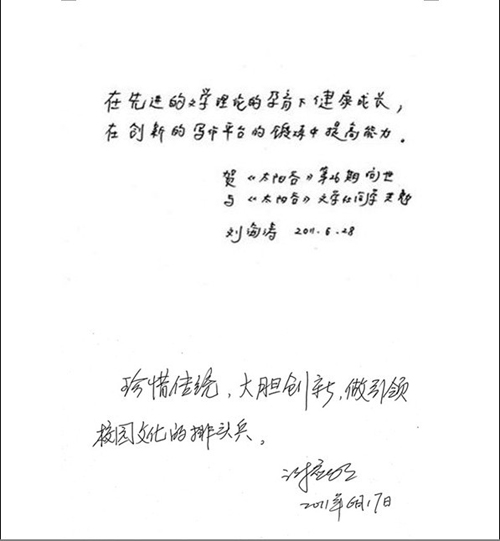 在先进的文学理论的孕育下健康成长，
在创新的写作平台的锻炼中提高能力。
贺《太阳谷》第26期问世
与《太阳谷》文学社同学共勉
刘海涛 2011.6.28
珍惜传统，大胆创新，做引领
校园文化的排头兵。
2011年6月17日